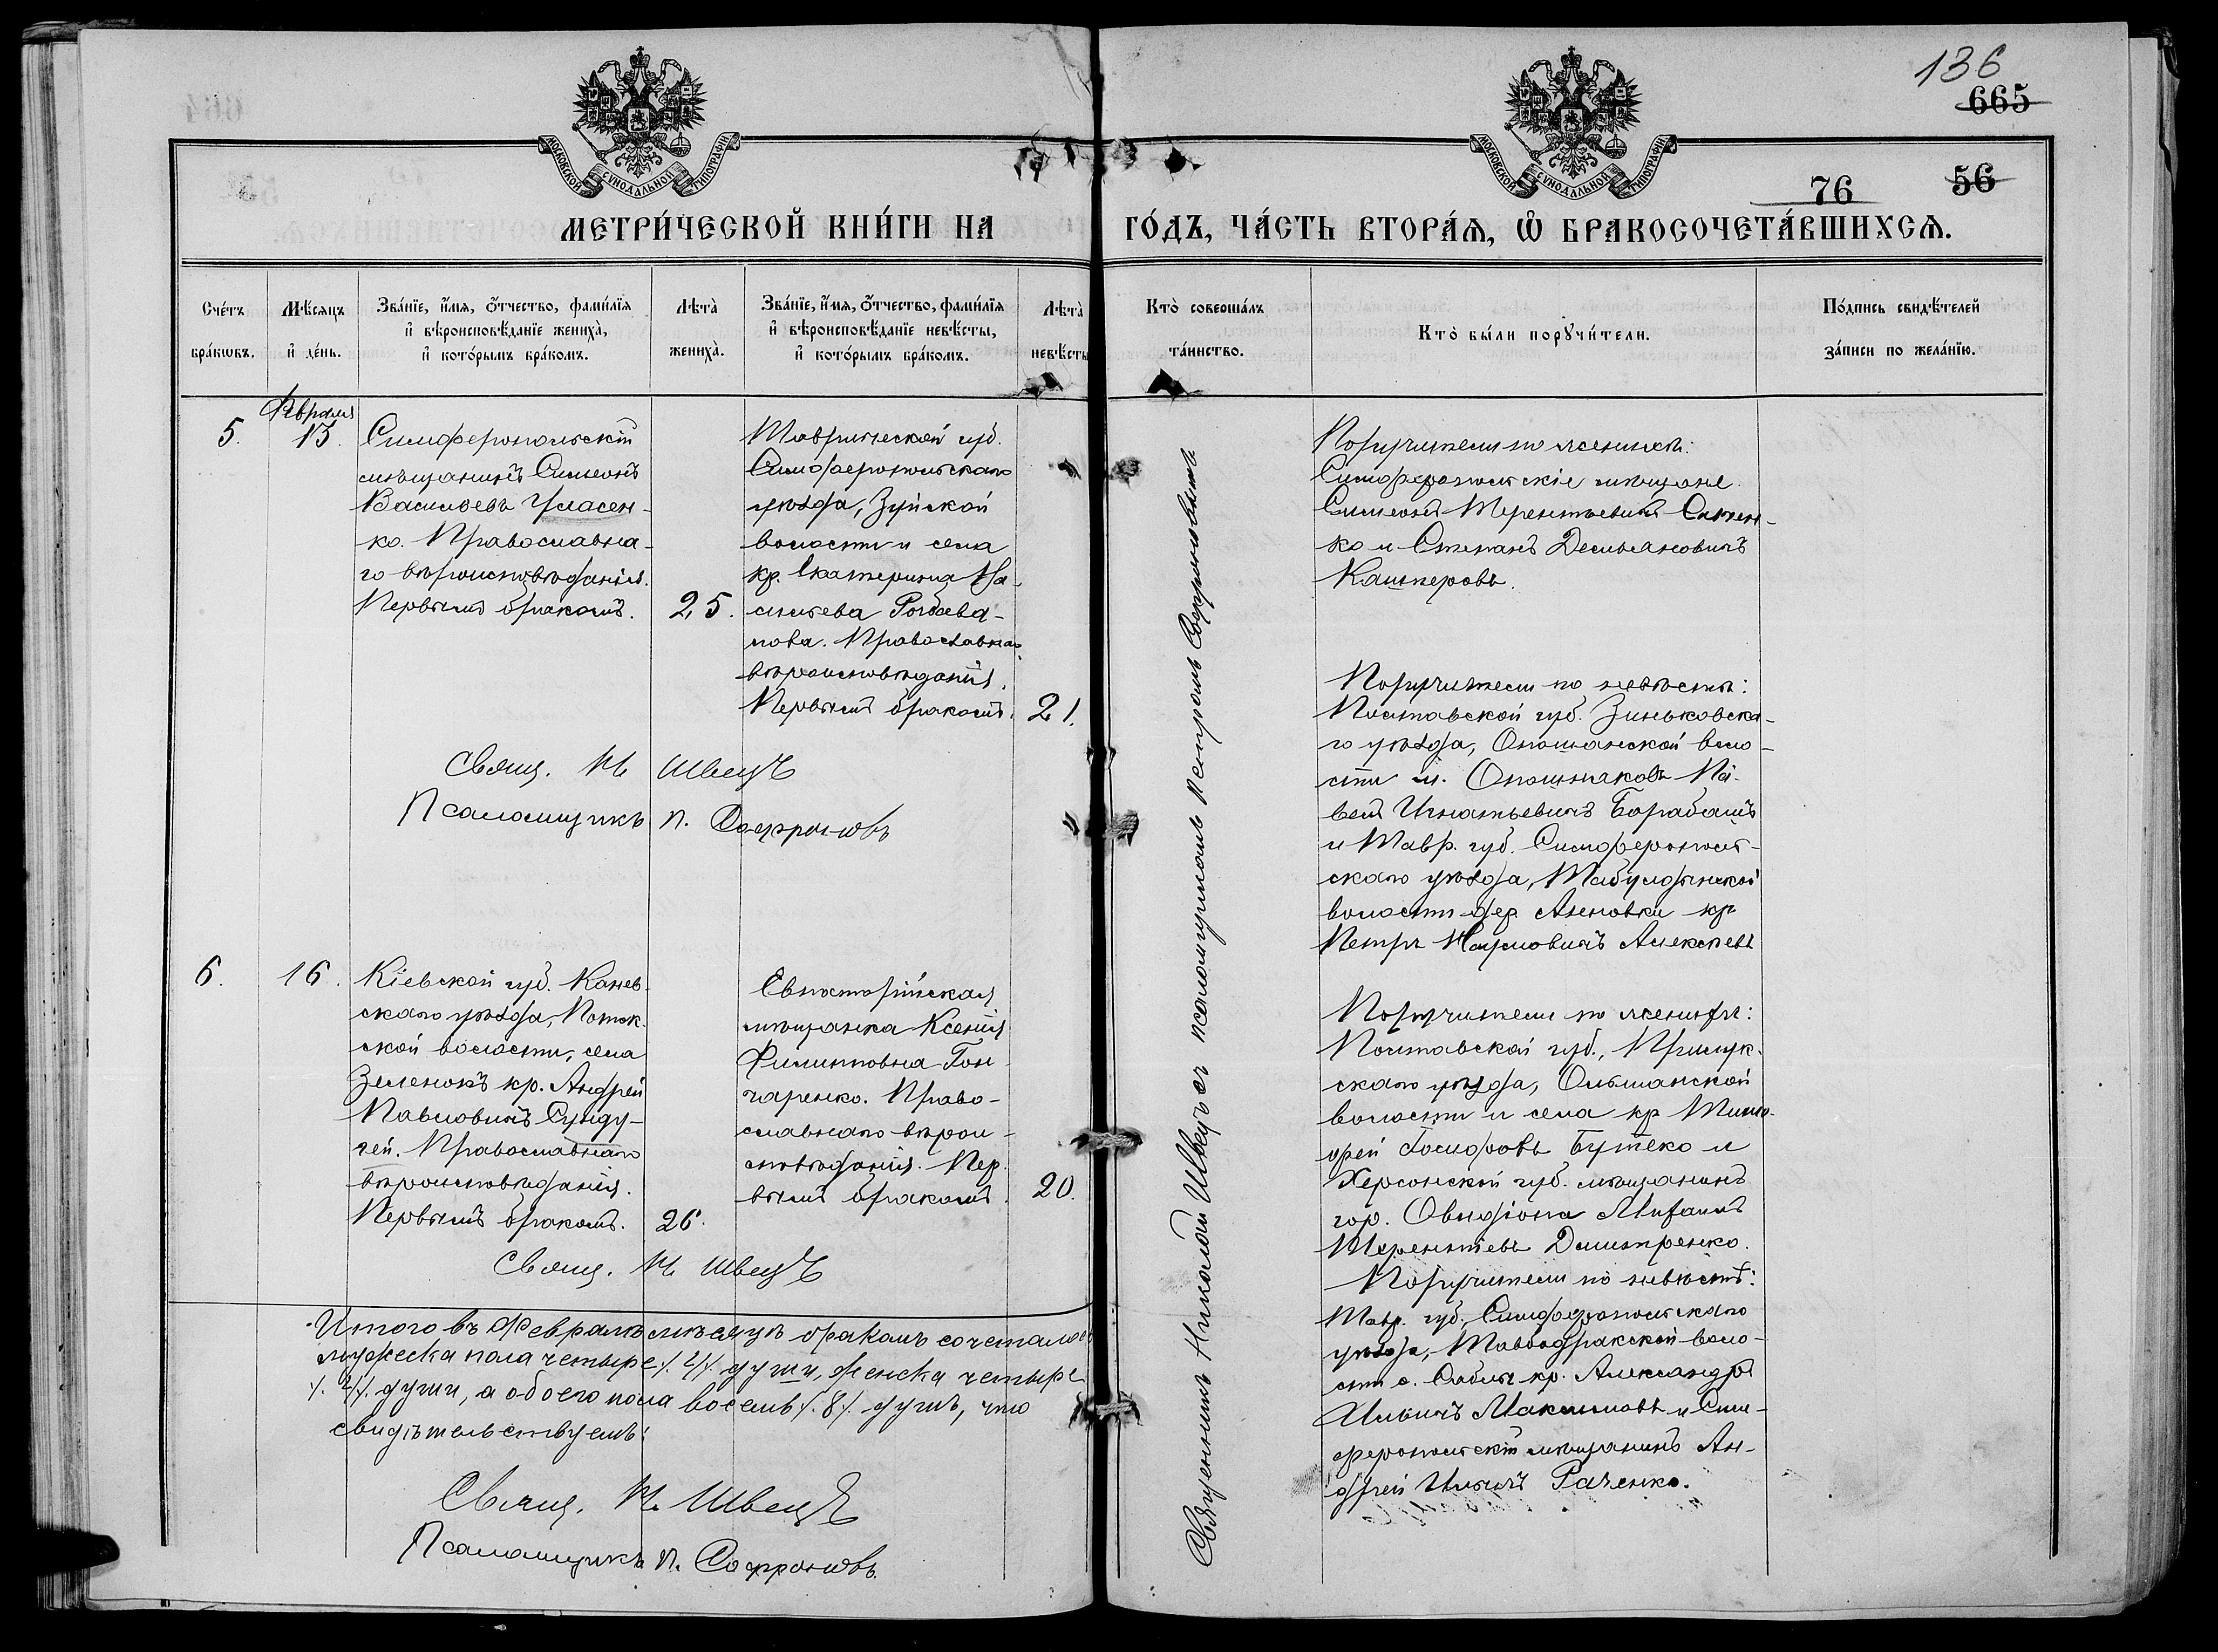 136
665
МОСКОВСКОЙ СУНОДАЛЬНОЙ ТИПОГРАФІИ
МОСКОВСКОЙ СУНОДАЛЬНОЙ ТИПОГРАФІИ
76 56
МЕТРИ́ЧЕСКОЙ КНИ́ГИ НА ГО́ДЪ, ЧА́СТЬ ВТОРА́Ѧ, Ѡ҆ БРАКОСОЧЕТА́ВШИХСѦ.
Сче́тъ
бра́кѡвъ.
Мѣ́сяцъ
и҆ де́нь.
Зва́нїе, и҆́мя, ѻ҆́тчество, фами́лїя
и҆ вѣроисповѣ́данїе жениха̀,
и҆ кото́рымъ бра́комъ.
Лѣта̀
жениха̀.
Зва́нїе, и҆́мя, ѻ҆́тчество, фами́лїя
и҆ вѣроисповѣ́данїе невѣ́сты,
и҆ кото́рымъ бра́комъ.
Лѣта̀
невѣ́сты
Кто̀ соверша́лъ
та́инство.
Кто̀ бы́ли порꙋчи́тели.
По́дпись свидѣ́телей
за́писи по жела́нїю.
Февраля
5. 13.
Симферопольскій
мѣщанинъ Симеонъ
Васильевъ Уласен-
ко. Православна-
го вѣроисповѣданія.
Первымъ бракомъ. 25.
Таврической губ.
Симферопольскаго
уѣзда, Зуйской
волости и села
кр. Екатерина
Православнаго
вѣроисповѣданія.
Первымъ бракомъ. 21.
Свящ. Н. Швецъ
Псаломщикъ П. Софроновъ
Поручители по женихѣ:
Симферопольскіе мѣщане
Симеонъ Терентьевичъ
ко и Степанъ Демьяновичъ
Кашперовъ.
Поручители по невѣстѣ:
Полтавской губ. Зиньковска-
го уѣзда, Опошанской воло-
сти м. Опошняковъ Па-
велъ Игнатьевичъ Барабашъ
и Тавр. губ. Симферополь-
скаго уѣзда, Табулдинской
волости дер. Аленовки кр
Петръ Наумовичъ Алексѣевъ
6. 16.
Кіевской губ. Канев-
скаго уѣзда, Поток-
ской волости, села
Зеленокъ кр. Андрей
Павловичъ Сунду-
чей. Православнаго
вѣроисповѣданія.
Первымъ бракомъ. 26.
Евпаторійская
мѣщанка Ксенія
Филипповна Гон-
чаренко. Право-
славнаго вѣрои-
сповѣданія. Пер-
вымъ бракомъ. 20.
Свящ. Н. Швецъ
Поручители по женихѣ:
Полтавской губ., Прилук-
скаго уѣзда, Ольшанской
волости и села кр Тимо-
фей Іосифовъ Бутеко и
Херсонской губ. мѣщанинъ
гор. Овидіопа Михаилъ
Терентіевъ Дмитренко.
Поручители по невѣстѣ:
Тавр. губ., Симферопольскаго
уѣзда, Тавбадракской воло-
сти с. Саблы кр. Александръ
Ильичъ Максимовъ и Сим-
феропольскій мѣщанинъ Ан-
дрей Ильичъ Раченко.
Священникъ Николай Швецъ съ псаломщикомъ Петромъ Софроновымъ
Итого въ Февралѣ мѣсяцѣ бракомъ сочеталось
мужеска пола четыре /. 4 /. души, женска четыре
/. 4 /. души, а обоего пола восемь /. 8 /. душъ, что
свидѣтельствуемъ:
Свящ. Н. Швецъ
Псаломщикъ П. Софроновъ.